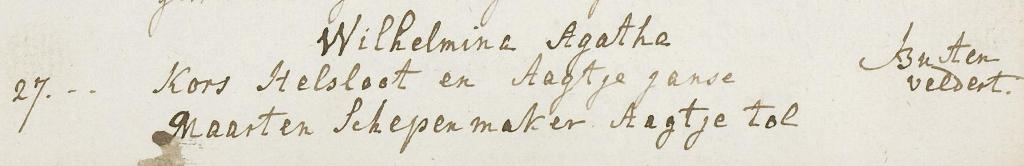 Wilhelmina Agatha
27. -- Kors Helsloot en Aagtje janse
Maarten Schepenmaker Aagtje tol
Buiten
veldert.